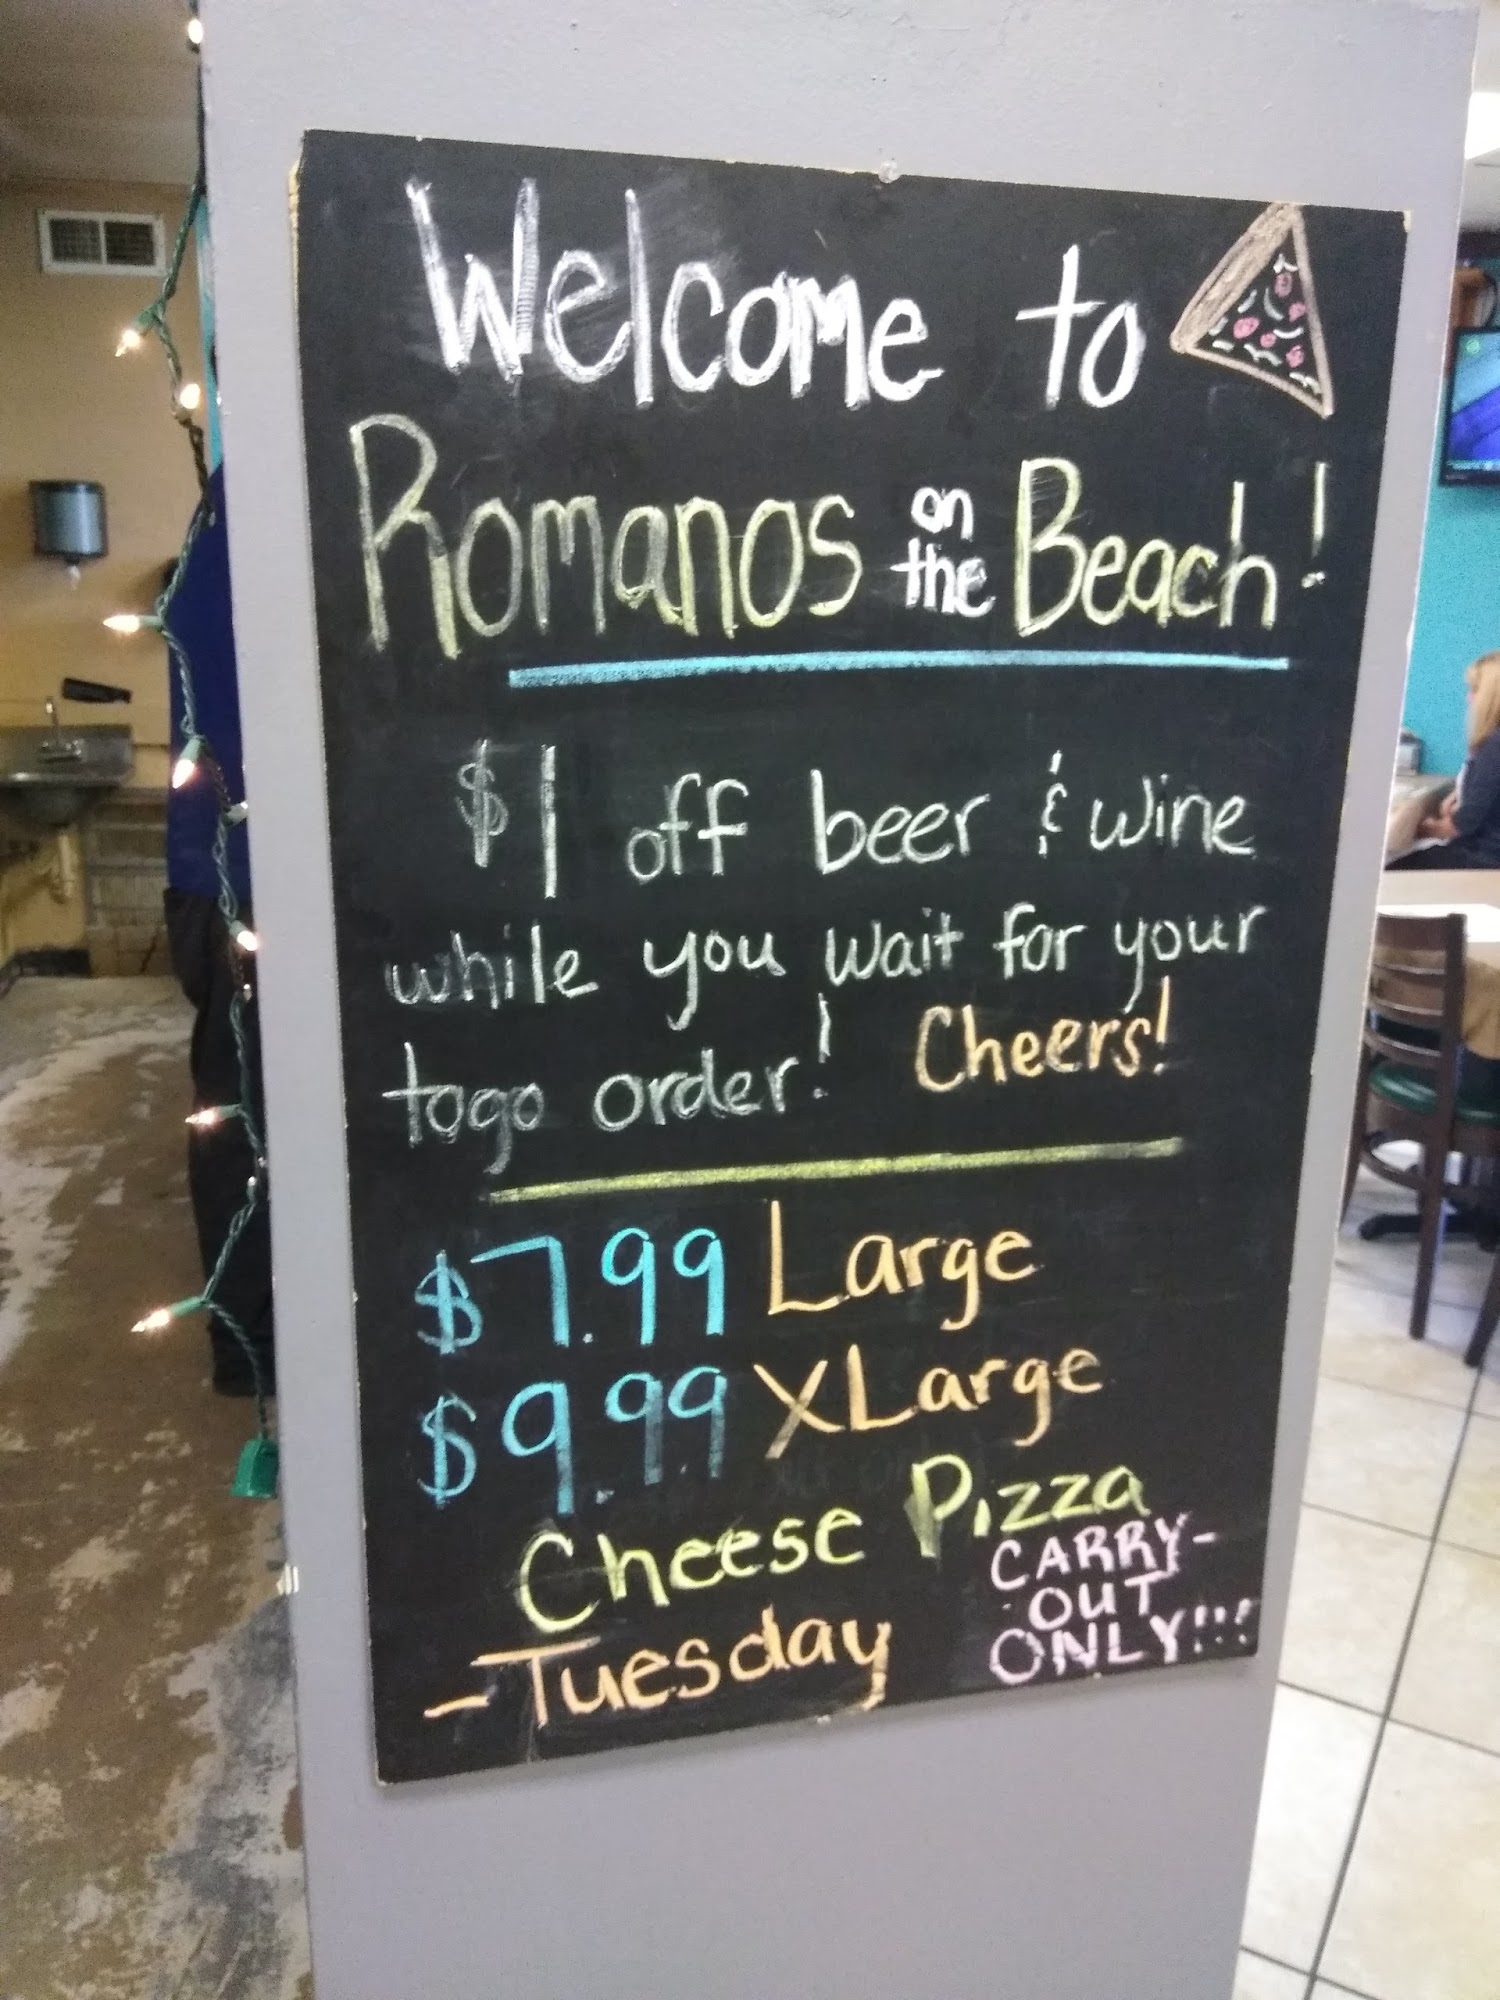 Welcome to
Romanos on the Beach!
$1 off beer & wine
while you wait for your
togo order! Cheers!
$7.99 Large
$9.99 XLarge
Cheese Pizza
-Tuesday
CARRY-
OUT
ONLY!!!